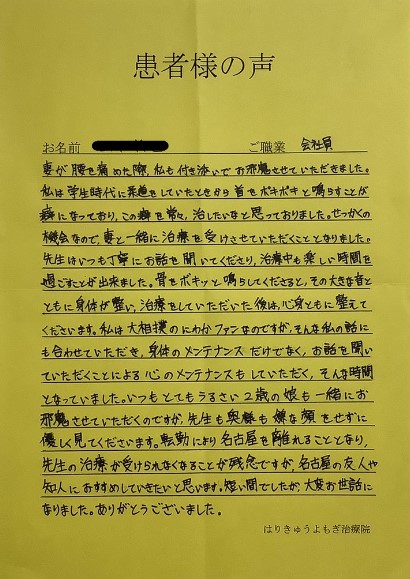 患者様の声
お名前 ご職業 会社員
妻が腰を痛めた際、私も付き添いでお邪魔させていただきました。
私は学生時代に柔道をしていたときから首をポキポキと鳴らすことが
癖になっており、この癖を常々、治したいなと思っておりました。せっかくの
機会なので、妻と一緒に治療を受けさせていただくこととなりました。
先生はいつも丁寧にお話を聞いてくださり、治療中も楽しい時間を
過ごすことが出来ました。骨をボキッと鳴らしてくださると、その大きな音と
ともに身体が整い、治療をしていただいた後は、心身ともに整えて
くださいます。私は大相撲のにわかファンなのですが、そんな私の話に
も合わせていただき、身体のメンテナンスだけでなく、お話を聞い
ていただくことによる心のメンテナンスもしていただく、そんな時間
となっていました。いつもとてもうるさい2歳の娘も一緒にお
邪魔のさせていただくのですが、先生も奥様も嫌な顔をせずに
優しく見てくださいます。転勤により名古屋を離れることとなり、
先生の治療が受けられなくなることが残念ですが、名古屋の友人や
知人におすすめしていきたいと思います。短い間でしたが、大変お世話に
なりました。ありがとうございました。
はりきゅうよもぎ治療院